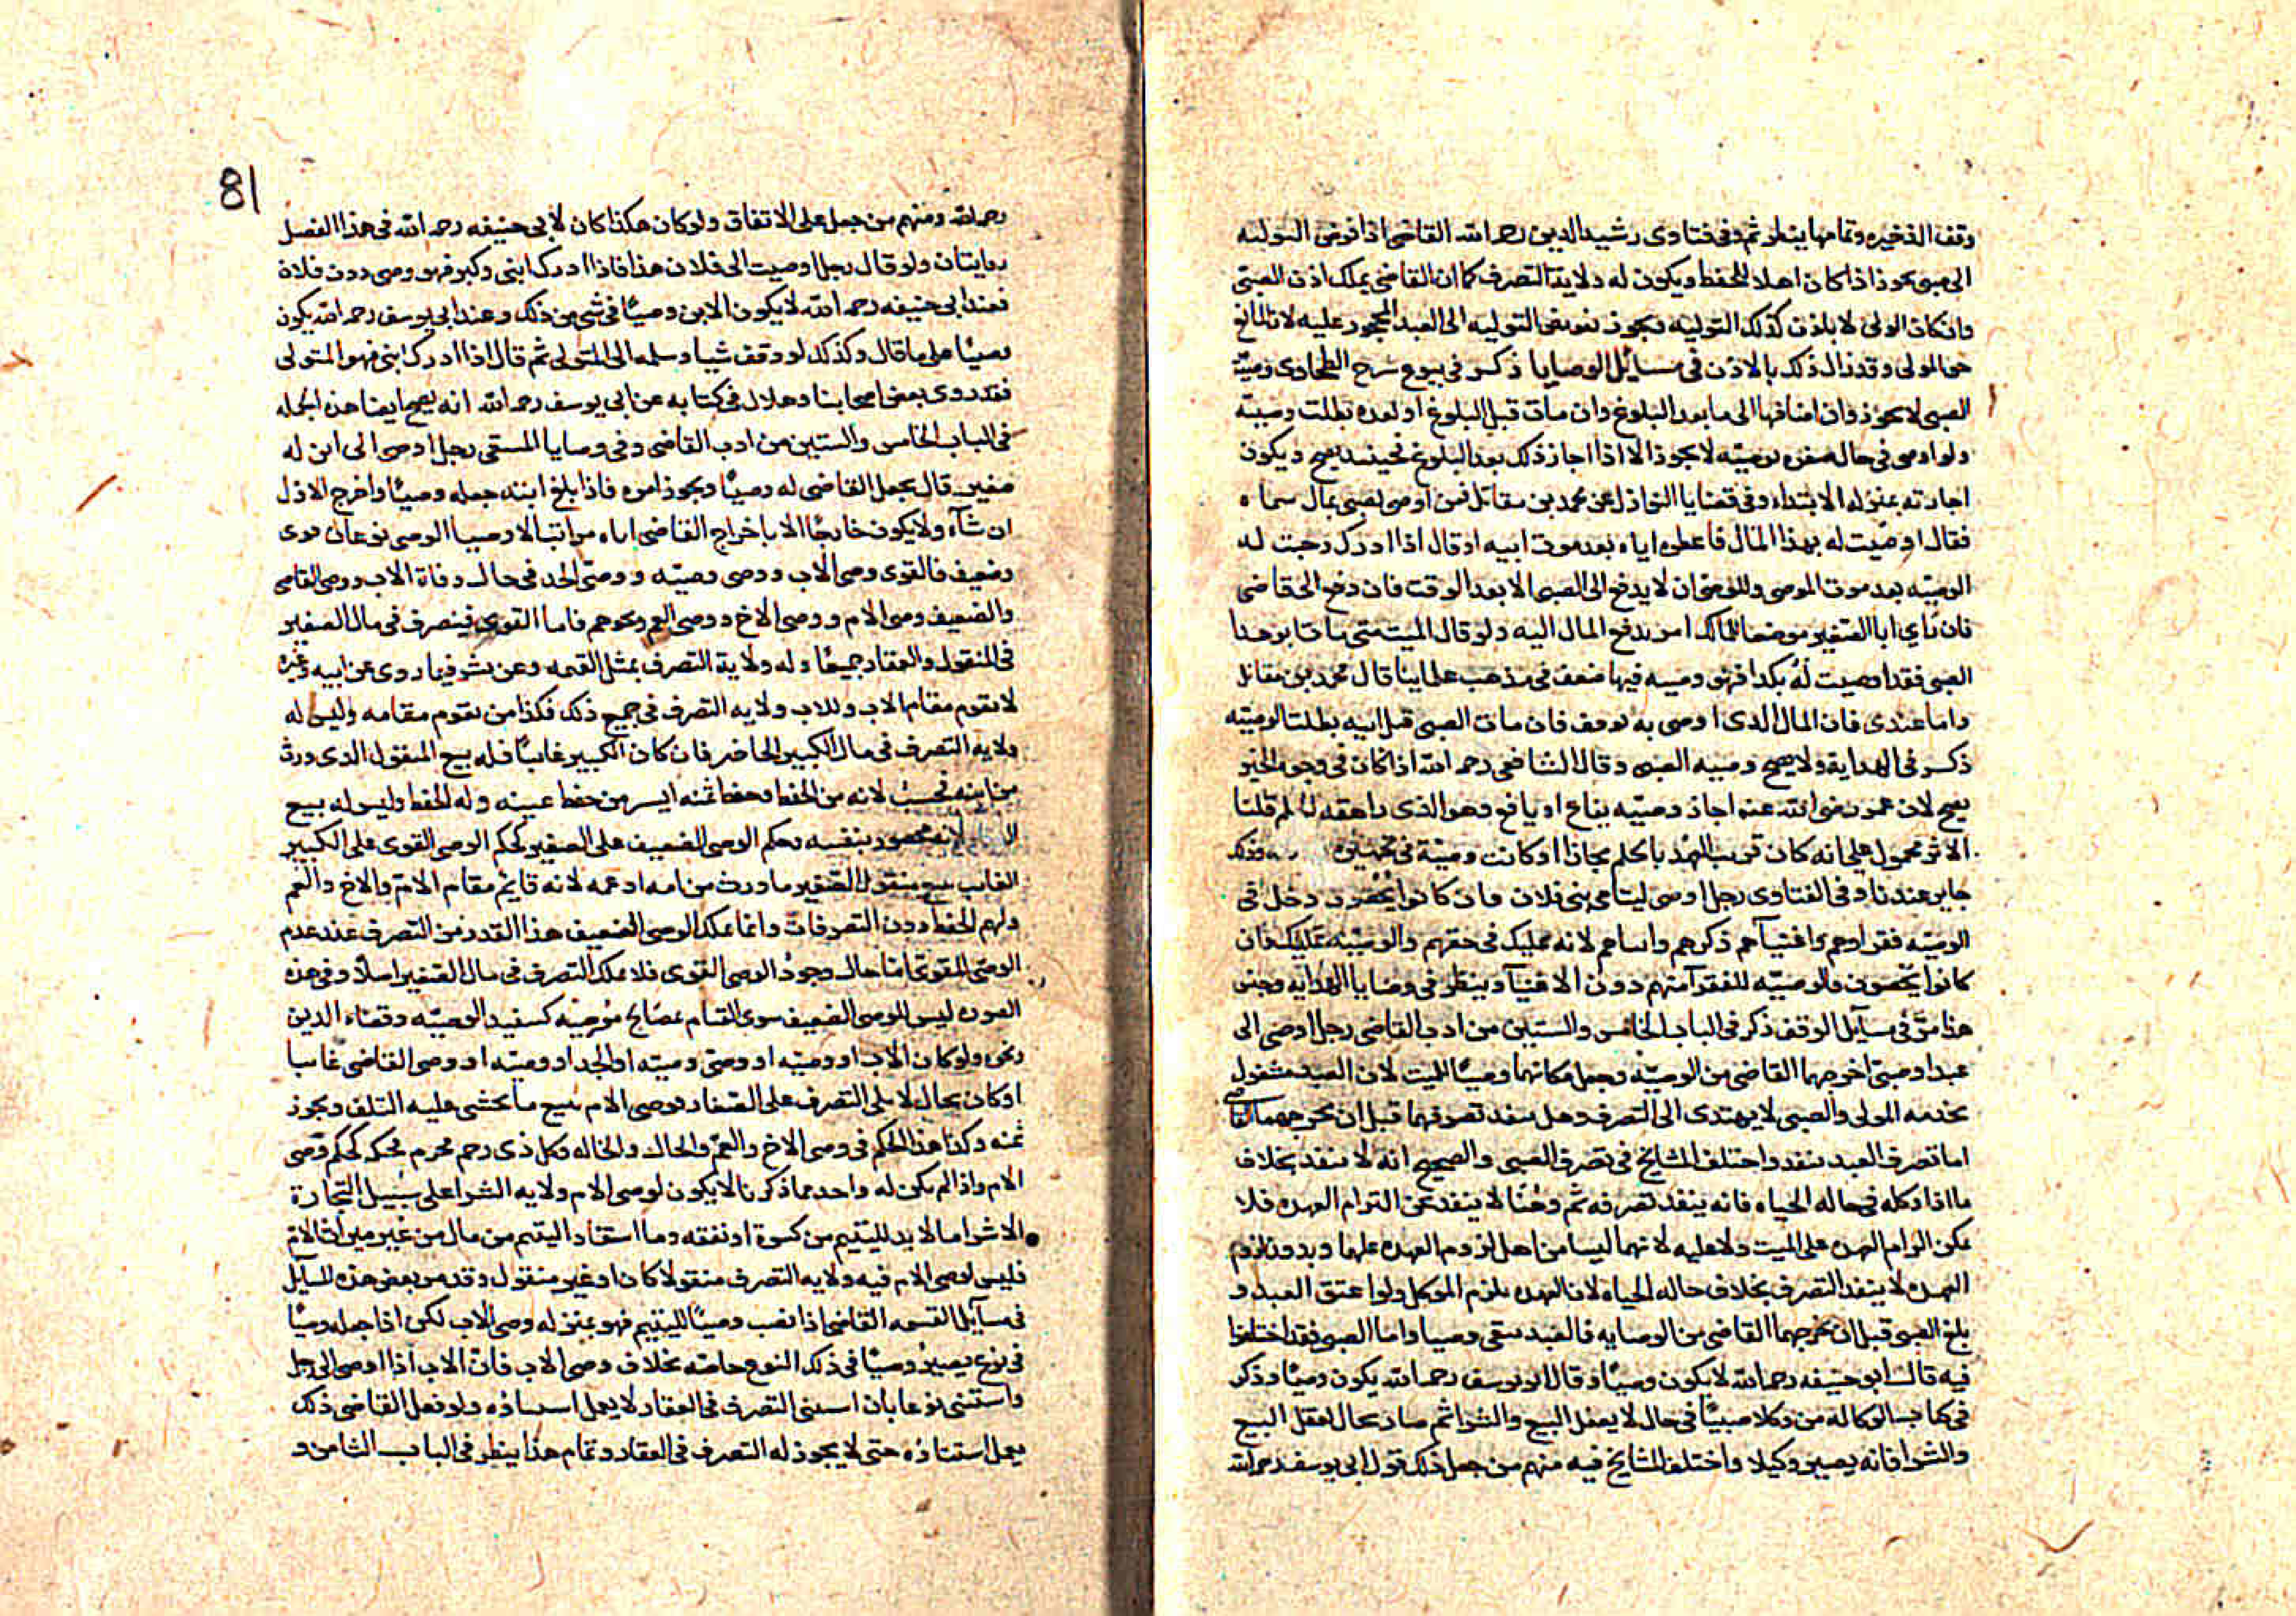 وقف الذخيره وتمامها ينظر ثم وفى فتاوى رشيد الدين رحمه الله القاضى اذا فوض التوليه
الى صبى يجوز اذا كان اهلا للحفظ ويكون له ولاية التصرف كما ان القاضى يملك اذن الصبى
وان كان الولى لا ياذن كذلك التوليه ويجوز تفويض التوليه الى العبد المحجور عليه لان المانع
حق المولى وقد زال ذلك بالاذن فى مسايل الوصايا ذكر فى بيوع شرح الطحاوى وصيّة
الصبى لا تجوز وان اضافها الى ما بعد البلوغ وان مات قبل البلوغ او بعده بطلت وصيته
ولو اوصى فى حال صغره بوصيّه لا يجوز الا اذا اجاز ذلك بعد البلوغ فحينئذ يصح ويكون
اجازته بمنزله الابتداء وفى قضايا النوازل عن محمد بن مقاتل فمن اوصى لصبى بمال سماه
فقال اوصيت له بهذا المال فاعطى اياه بعد موت ابيه او قال اذا ادرك وجبت له
الوصيّه بعد موت الموصى وللوصى ان لا يدفع الى الصبى الا بعد الوقت فان دفع الى قاضى
فان راى ابا الصغير موضعا لذلك امر بدفع المال اليه ولو قال الميت متى ما مات ابو هذا
الصبى فقد اوصيت له بكذا فهى وصيه فيها ضعف فى مذهب علماينا قال محمد بن مقاتل
واما عندى فان المال الذى اوصى به يوقف فان مات الصبى قبل ابيه بطلت الوصيّه
ذكر فى الهداية ولا يصح وصيه الصبى وقال الشافعى رحمه الله اذا كان فى وجوه الخير
يصح لان عمر رضى الله عنه اجاز وصيّه يفاع او يافع وهو الذى راهق
الاثر محمول على انه كان قريب العهد بالحلم مجازا او كانت وصيّة فى تجهيزه وذلك
جايز عندنا وفى الفتاوى رجل اوصى ليتامى بنى فلان فان كانوا يحصون دخل فى
الوصيّه فقراوهم واغنيآهم ذكرهم وانساهم لانه تمليك فى حقهم والوصيّه تمليك فان
كانوا لا يحصون فالوصيّه للفقرآ منهم دون الاغنيآ وينظر فى وصايا الهدايه وجنس
هذا مرّ فى مسآيل الوقف ذكر فى الباب الخامس والستين من ادب القاضى رجل اوصى الى
عبد او صبى اخرجهما القاضى من الوصيّه وجعل مكانهما وصيّا للميت لان العبد مشغول
بخدمه المولى والصبى لا يهتدى الى التصرف وهل ينفذ تصرفهما قبل ان يخرجهما القاضى
اما تصرف العبد ينفذ واختلف المشايخ فى تصرف الصبى والصحيح انه لا ينفذ بخلاف
ما اذا وكله فى حاله الحياه فانه ينفذ تصرفه ثم وهنا لا ينفذ عن التزام العهده فلا
يمكن الزام العهده على الميت ولا عليه لانهما ليسا من اهل لزوم العهده عليهما وبدون لزوم
العهده لا ينفذ التصرف بخلاف حاله الحياه لان العهده تلزم الموكل ولو اعتق العبد و
بلغ الصبى قبل ان يخرجهما القاضى من الوصايه فالعبد يبقى وصيا واما الصبى فقد اختلفوا
فيه قال ابو حنيفه رحمه الله لا يكون وصيّا وقال ابو يوسف رحمه الله يكون وصيّا وذكر
فى كتاب الوكاله من وكل صبيّا فى حال لا يعقل البيع والشرا ثم صار بحال يعقل البيع
والشرا فانه يصير وكيلا واختلف المشايخ فيه منهم من جعل ذلك قول ابى يوسف رحمه الله
81
رحمه الله ومنهم من جعل على الاتفاق ولو كان هكذا كان لابى حنيفه رحمه الله فى هذا الفصل
روايتان ولو قال رجل اوصيت الى فلان هذا فاذا ادرك ابنى وكبر فهو وصى دون فلان
فعند ابى حنيفه رحمه الله لا يكون الابن وصيّا فى شى من ذلك وعند ابى يوسف رحمه الله يكون
وصيّا على ما قال وكذلك لو وقف شيا وسلمه الى المتولى ثم قال اذا ادرك ابنى فهو المتولى
فقد روى بعض اصحابنا وهلال فى كتابه عن ابى يوسف رحمه الله انه يصح ايضا هذه الجمله
فى الباب الخامس والستين من ادب القاضى وفى وصايا المنتقى رجل اوصى الى ابن له
صغير قال يجعل القاضى له وصيّا ويجوز امره فاذا بلغ ابنه جعله وصيّا واخرج الاول
ان شآء ولا يكون خارجا الا باخراج القاضى اياه مراتب الاوصيا الوصى نوعان قوى
وضعيف فالقوى وصى الاب ووصى وصيّه ووصىّ الجد فى حال وفاة الاب ووصى القاضى
والضعيف وصى الام ووصى الاخ ووصى العم ونحوهم فاما القوى فيتصرف فى مال الصغير
فى المنقول والعقار جميعا وله ولاية التصرف بمثل القيمه وعن بشر فيما روى عن ابيه وغيره
لا يقوم مقام الاب وللاب ولايه التصرف فى جميع ذلك فكذا من يقوم مقامه وليس له
ولايه التصرف فى مال الكبير الحاضر فان كان الكبير غايبًا فله بيع المنقول الذى ورث
من ابيه فحسب لانه من الحفظ وحفظ ثمنه ايسر من حفظ عينه وله الحفظ وليس له بيع
لانه محصور بنفسه وحكم الوصى الضعيف على الصغير كحكم الوصى القوى على الكبير
الغايب يبيع منقول الصغير ما ورث من امه او عمه لانه قايم مقام الام والاخ والعم
ولهم الحفظ دون التصرفات وانما يملك الوصى الضعيف هذا القدر من التصرف عند عدم
الوصى القوى اما حال وجود الوصى القوى فلا يملك التصرف فى مال الصغير اصلا وفى هذه
الصوره ليس للوصى الضعيف سوى القيام بمصالح موصيه كتنفيذ الوصيّه وقضاء الدين
ونحوه ولو كان الاب او وصيّه او وصى وصيّه او الجد او وصيّه او وصى القاضى غايبا
او كان بحال لا يلى التصرف على الصغار فوصى الام يبيع ما يخشى عليه التلف ويحوز
ثمنه وكذا هذا الحكم فى وصى الاخ والعم والخال والخاله وكل ذى رحم محرم فحكمه كحكم وصى
الام واذا لم يكن له واحد مما ذكرنا لا يكون لوصى الام ولايه الشرا على سبيل التجارة
الا شرا ما لا بد لليتيم من كسوة او نفقه وما استفاد اليتيم من مال من غير ميراث الام
فليس لوصى الام فيه ولايه التصرف منقولا كان او غير منقول وقد مر بعض هذه المسآيل
فى مسآيل القسمه القاضى اذا نصب وصيّا لليتيم فهو بمنزله وصى الاب لكن اذا جعله وصيّا
فى نوع يصير وصيّا فى ذلك النوع خاصه بخلاف وصى الاب فان الاب اذا اوصى الى رجل
واستثنى نوعا بان استثنى التصرف فى العقار لا يعمل استثناؤه ولو فعل القاضى ذلك
يعمل استثناؤه حتى لا يجوز له التصرف فى العقار وتمام هذا ينظر فى الباب الثامن و